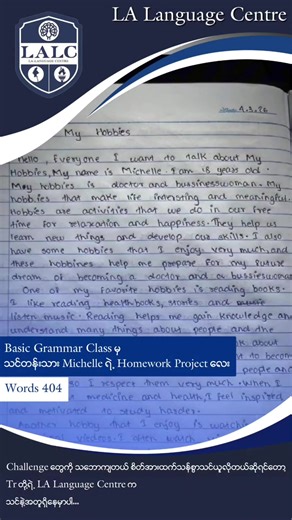 LA Language Centre
LALC
LA LANGUAGE CENTRE
4.3.26
My Hobbies
Hello, Everyone I want to talk about My
Hobbies, My name is Michelle. I am 18 years old.
My hobbies is doctor and bussinesswoman. My
hobbies that make life intersting and meaningful.
Hobbies are activities that we do in our free
time for relaxation and happiness. They help us
learn new things and develop our skills. I also
have some hobbies that I enjoy very much and
these hobbines help me prepare for my future
dream of becoming a doctor and a bussieswoman
One of my favorite hobbies is reading books.
I like reading healthbooks, stories and
listen music. Reading helps me gain knowledge and
understand many things about people and the
about
to become
people and
I respect them very much. When I
medicine and health, I feel inspired
and motivated to study harder.
Another hobby that I enjoy is watching
videos. I often watch
Basic Grammar Class မှ
သင်တန်းသား Michelle ရဲ့ Homework Project လေး
Words 404
Challenge တွေကို သဘောကျတယ် စိတ်အားထက်သန်စွာသင်ယူလိုတယ်ဆိုရင်တော့
Tr တို့ရဲ့ LA Language Centre က
သင်နဲ့အတူရှိနေမှာပါ...